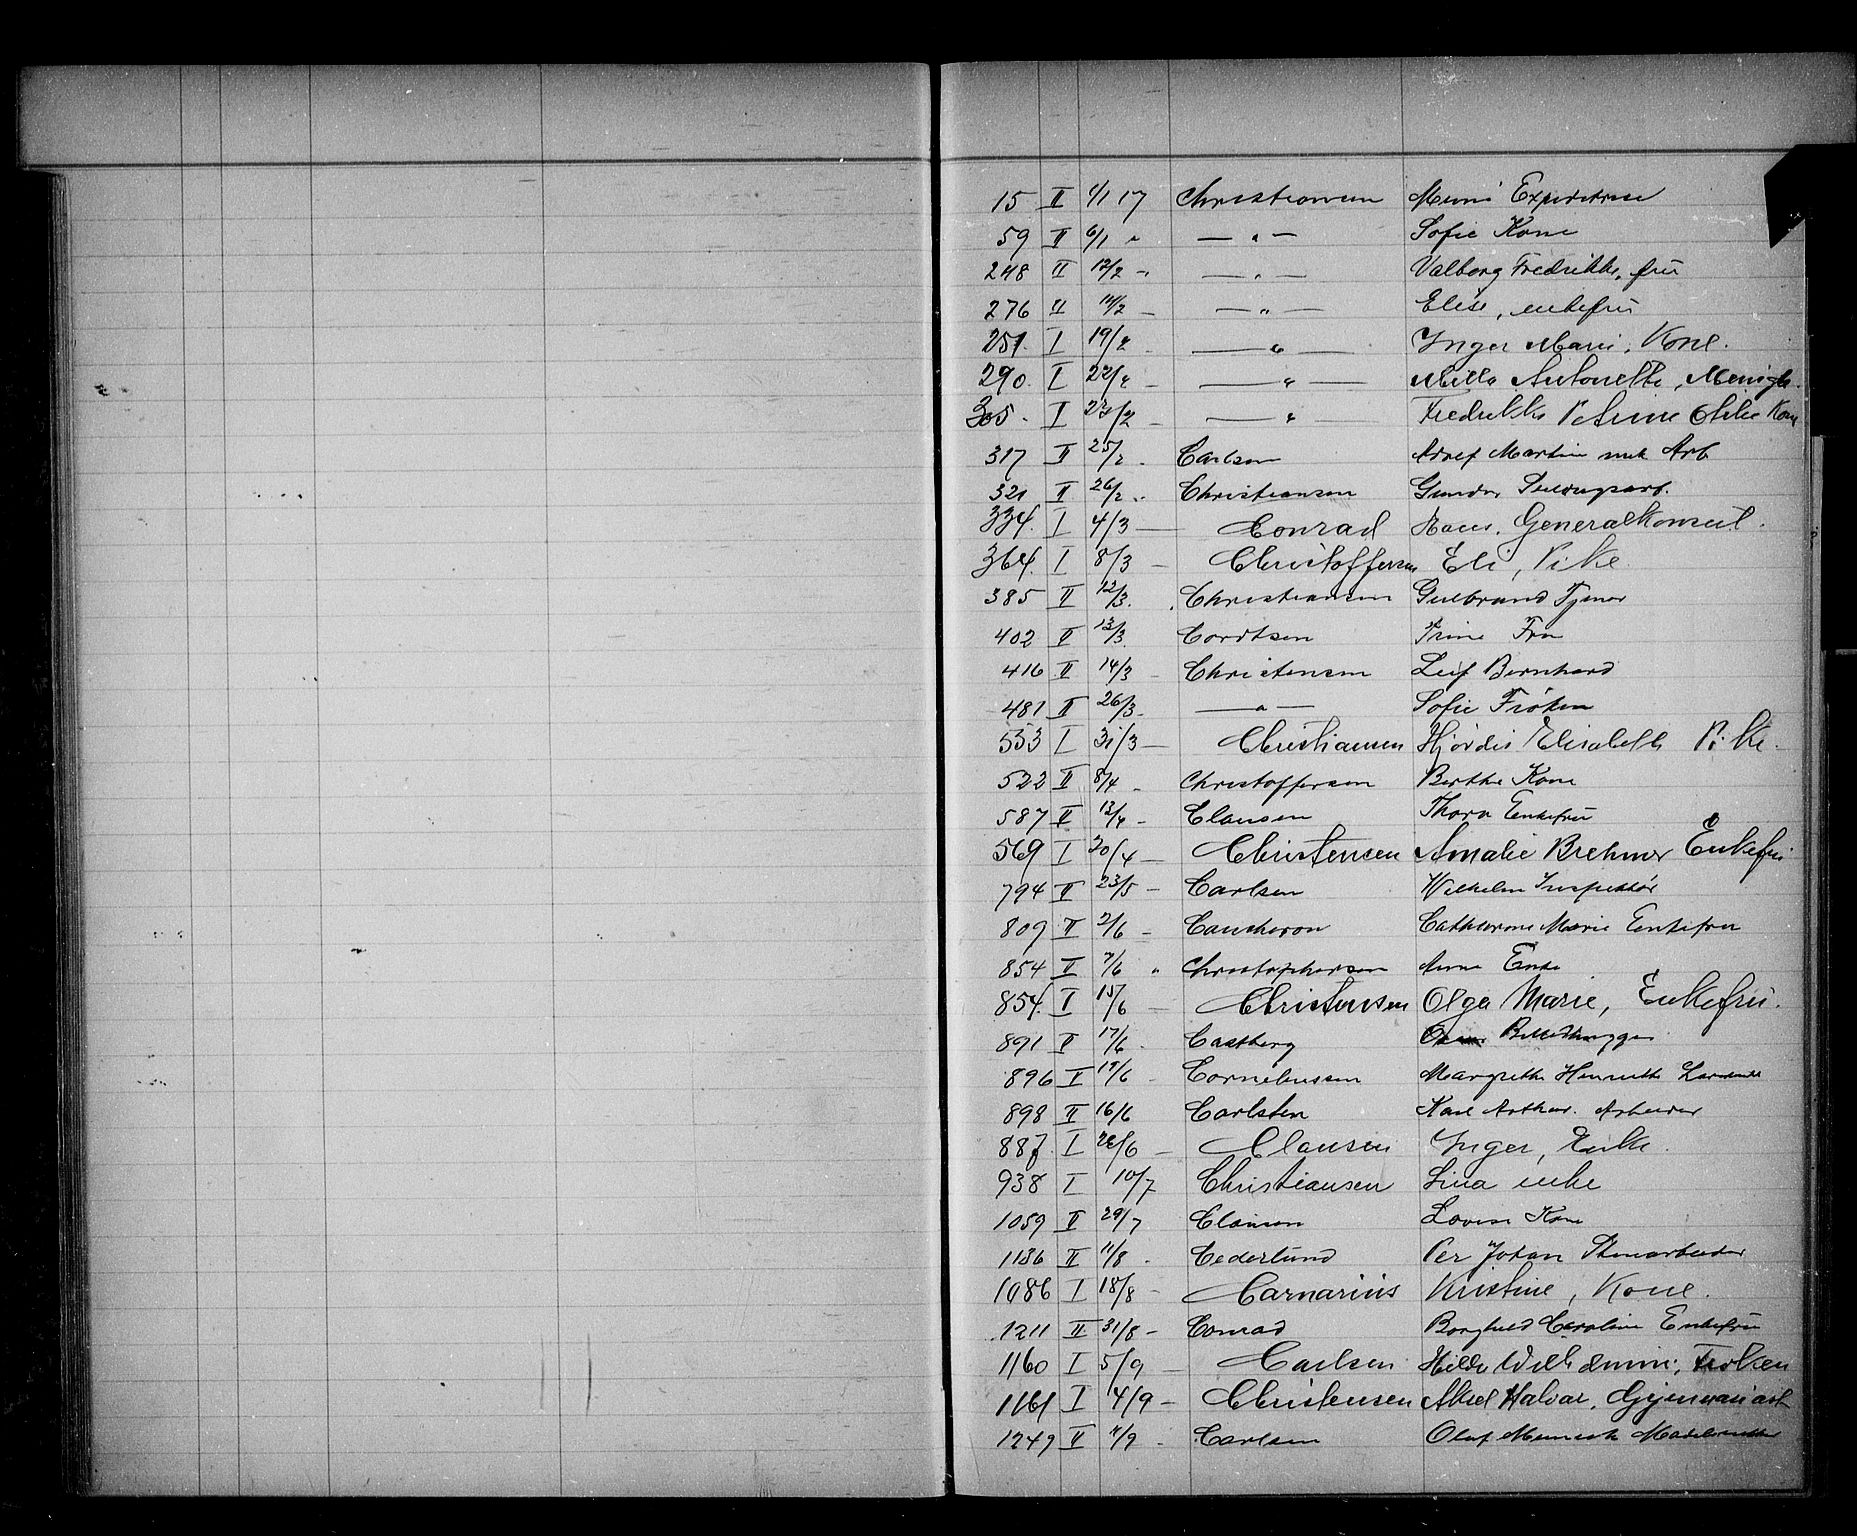 15 II 1/1 17 Christiansen
59 II 6/1 " — " — Sofie Kone
248 II 12/2 - — " — Valborg Fredrikke, fru
276 II 14/2 - — " — Elise, enkefru
251. I 19/2 - — " — Inger Marie, Kone.
290. I 22/2 - — " — Milla Antonette,
305. I 23/2 - — " — Fredrikke Petrine Kone
317 II 25/2 - Carlsen Adolf Martin Arb
321 II 26/2 " Christiansen
334. I 4/3 — Conrad Hans, Generalkonsul.
364. I 8/3 — Christoffersen Eli, Pike
385 II 12/3. Christiansen Gulbrand Tjener
402 II 13/3. Cordtsen Trine Fru
416 II 14/3 - Christensen Leif Bernhard
481 II 26/3. — " — Sofie Frøken
533 I 31/3 — Christiansen Hjørdis Elisabeth Pike.
522 II 8/4 - Christoffersen Berthe Kone
587 II 13/4 - Clausen Thora Enkefru
569 I 20/4 — Christensen Amalie Brehmer Enkefru
794 II 23/5 — Carlsen Wilhelm Inspektør
809 II 2/6 - Caucheron Cathrine Marie Enkefru
854 II 7/6 " Christophersen Anna Enke
854. I 15/6 — Christensen Olga Marie, Enkefru.
891 II 17/6 - Castberg Billedhugger
896 II 19/6 - Corneliussen Margrethe Henriette
898 II 16/6 Carlsten Karl Arthur. Arbeider
887. I 26/6 — Clausen Inger, Enke.
938 I 10/7 Christiansen Lina enke
1059 II 29/7 Clausen Lovise Kone
1136 II 11/8 - Cederlund Per Johan Stenarbeider
1086 I 18/8 - Carnarius Kristine, Kone.
1211 II 31/8 - Conrad Borghild Caroline Enkefru
1160 I 5/9 — Carlsen Hilda Wilhelmine, Frøken
1161 I 4/9 - Christensen Aksel Halvar, Gymnasiast
1249 II 11/9 - Carlsen Olaf